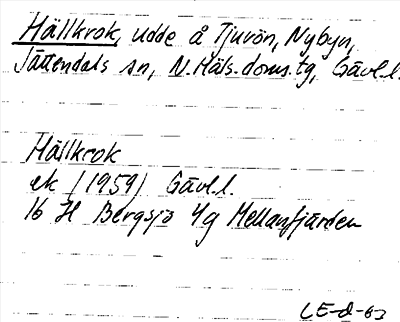 Hällkrok, udde å Tjuvön, Nybyn,
Jättendals sn, N. Häls. doms. tg, Gävl.l.
Hällkrok
ek (1959) Gävl.l.
16 H Bergsjö 4g Mellanfjärden
LE-d-63